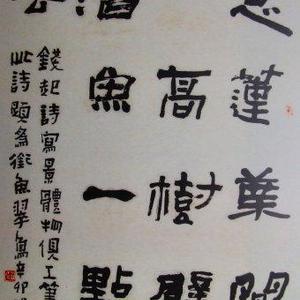 意蓮葉間
高樹擘
潛魚一點
錢起詩寫景體物俱工筆
此詩題為銜魚翠鳥辛卯